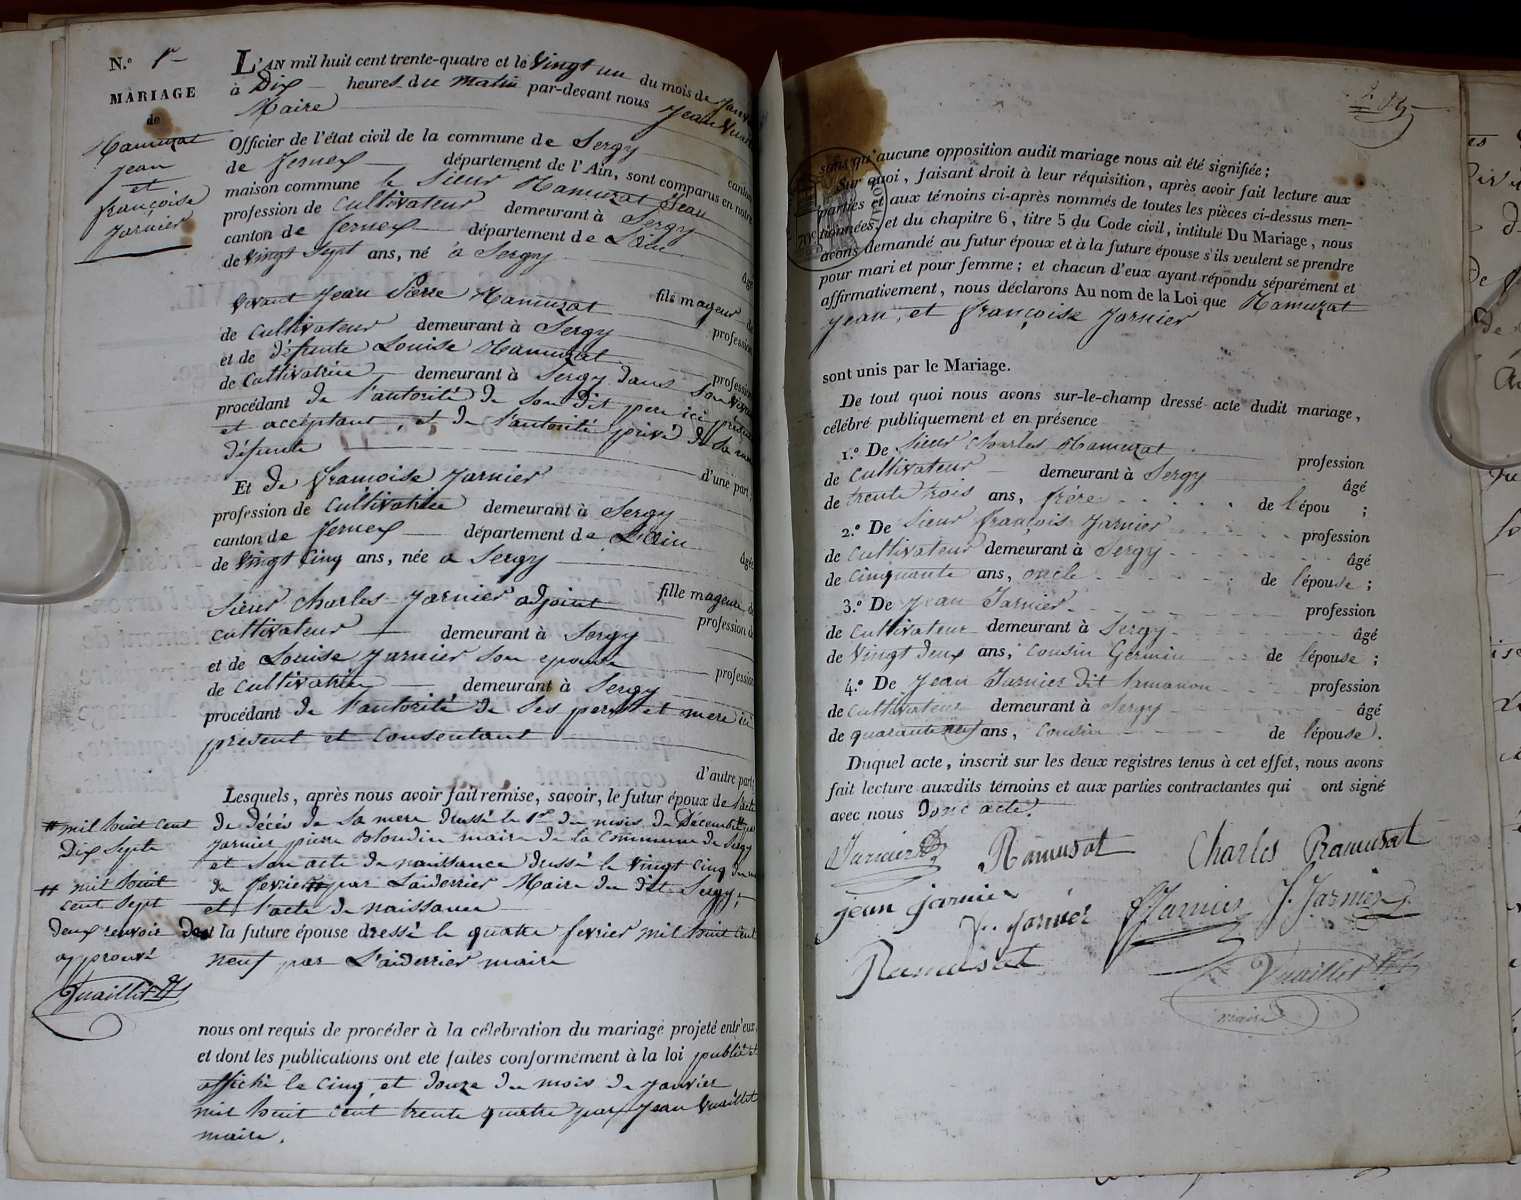 N.º 1er
MARIAGE
de
Ramuzat
Jean
et
françoise
Jarnier
L'AN mil huit cent trente-quatre et le Vingt un du mois de Janvier
à Dix heures du matin par-devant nous Jean Vuaillet
Maire
Officier de l'état civil de la commune de Sergy canton
de fernex département de l'Ain, sont comparus en notre
maison commune le Sieur Ramuzat Jean
profession de Cultivateur demeurant à Sergy
canton de fernex département de L'ain
de Vingt Sept ans, né à Sergy âgé
fils mageur de
vivant Jean Pierre Ramuzat profession
de Cultivateur demeurant à Sergy
et de défunte Louise Ramuzat profession
de Cultivatrice demeurant à Sergy dans son vivant
procédant de l'autorité de son dit pere ici présent
et accéptant, et de l'autorité privé de sa mere
défunte
d'une part;
Et de françoise Jarnier
profession de Cultivatrice demeurant à Sergy
canton de fernex département de L'Ain
de Vingt Cinq ans, née à Sergy âgée
fille mageure de
Sieur Charles Jarnier adjoint profession de
Cultivateur demeurant à Sergy
et de Louise Jarnier son epouse profession
de Cultivatrice demeurant à Sergy
procédant de l'autorité de ses pere et mere ici
present et Consentant
d'autre part;
Lesquels, après nous avoir fait remise, savoir, le futur époux de l'acte
de décés de sa mere dressé le 1er du mois de Décembre # par
Jarnier pierre Blondin maire de la Commune de Sergy
et son acte de naissance dressé le Vingt Cinq du mois
de fevrier # par Laiderrier Maire du dit Sergy;
et l'acte de naissance
de la future épouse dressé le quatre fevrier mil huit Cent
neuf par L'aiderrier maire
# mil huit cent
Dix Septe
# mil huit
cent Sept
deux renvoir
approuvé
Vuaillet
nous ont requis de procéder à la célébration du mariage projeté entr'eux,
et dont les publications ont ete faites conformément à la loi publié et
affiché le Cinq et douze du mois de Janvier
mil huit Cent trente quatre par Jean Vuaillet
maire.
sans qu'aucune opposition audit mariage nous ait été signifiée;
Sur quoi, faisant droit à leur réquisition, après avoir fait lecture aux
parties et aux témoins ci-après nommés de toutes les pièces ci-dessus men-
tionnées, et du chapitre 6, titre 5 du Code civil, intitulé Du Mariage, nous
avons demandé au futur époux et à la future épouse s'ils veulent se prendre
pour mari et pour femme; et chacun d'eux ayant répondu séparément et
affirmativement, nous déclarons Au nom de la Loi que Ramuzat
Jean, et françoise Jarnier
sont unis par le Mariage.
De tout quoi nous avons sur-le-champ dressé acte dudit mariage,
célébré publiquement et en présence
1.º De Sieur Charles Ramuzat profession
de Cultivateur demeurant à Sergy âgé
de trente trois ans, frére de l'épou ;
2.º De Sieur François Jarnier profession
de Cultivateur demeurant à Sergy âgé
de Cinquante ans, oncle de l'épouse ;
3.º De Jean Jarnier profession
de Cultivateur demeurant à Sergy âgé
de Vingt deux ans, Cousin Germin de l'épouse ;
4.º De Jean Jarnier dit profession
de Cultivateur demeurant à Sergy âgé
de quarante ans, Cousin de l'épouse.
Duquel acte, inscrit sur les deux registres tenus à cet effet, nous avons
fait lecture auxdits témoins et aux parties contractantes qui ont signé
avec nous Donc acte.
Jarnier Ramusat Charles Ramusat
jean jarnier f. jarnier fJarnier J. Jarnier
Ramusat
Vuaillet
maire